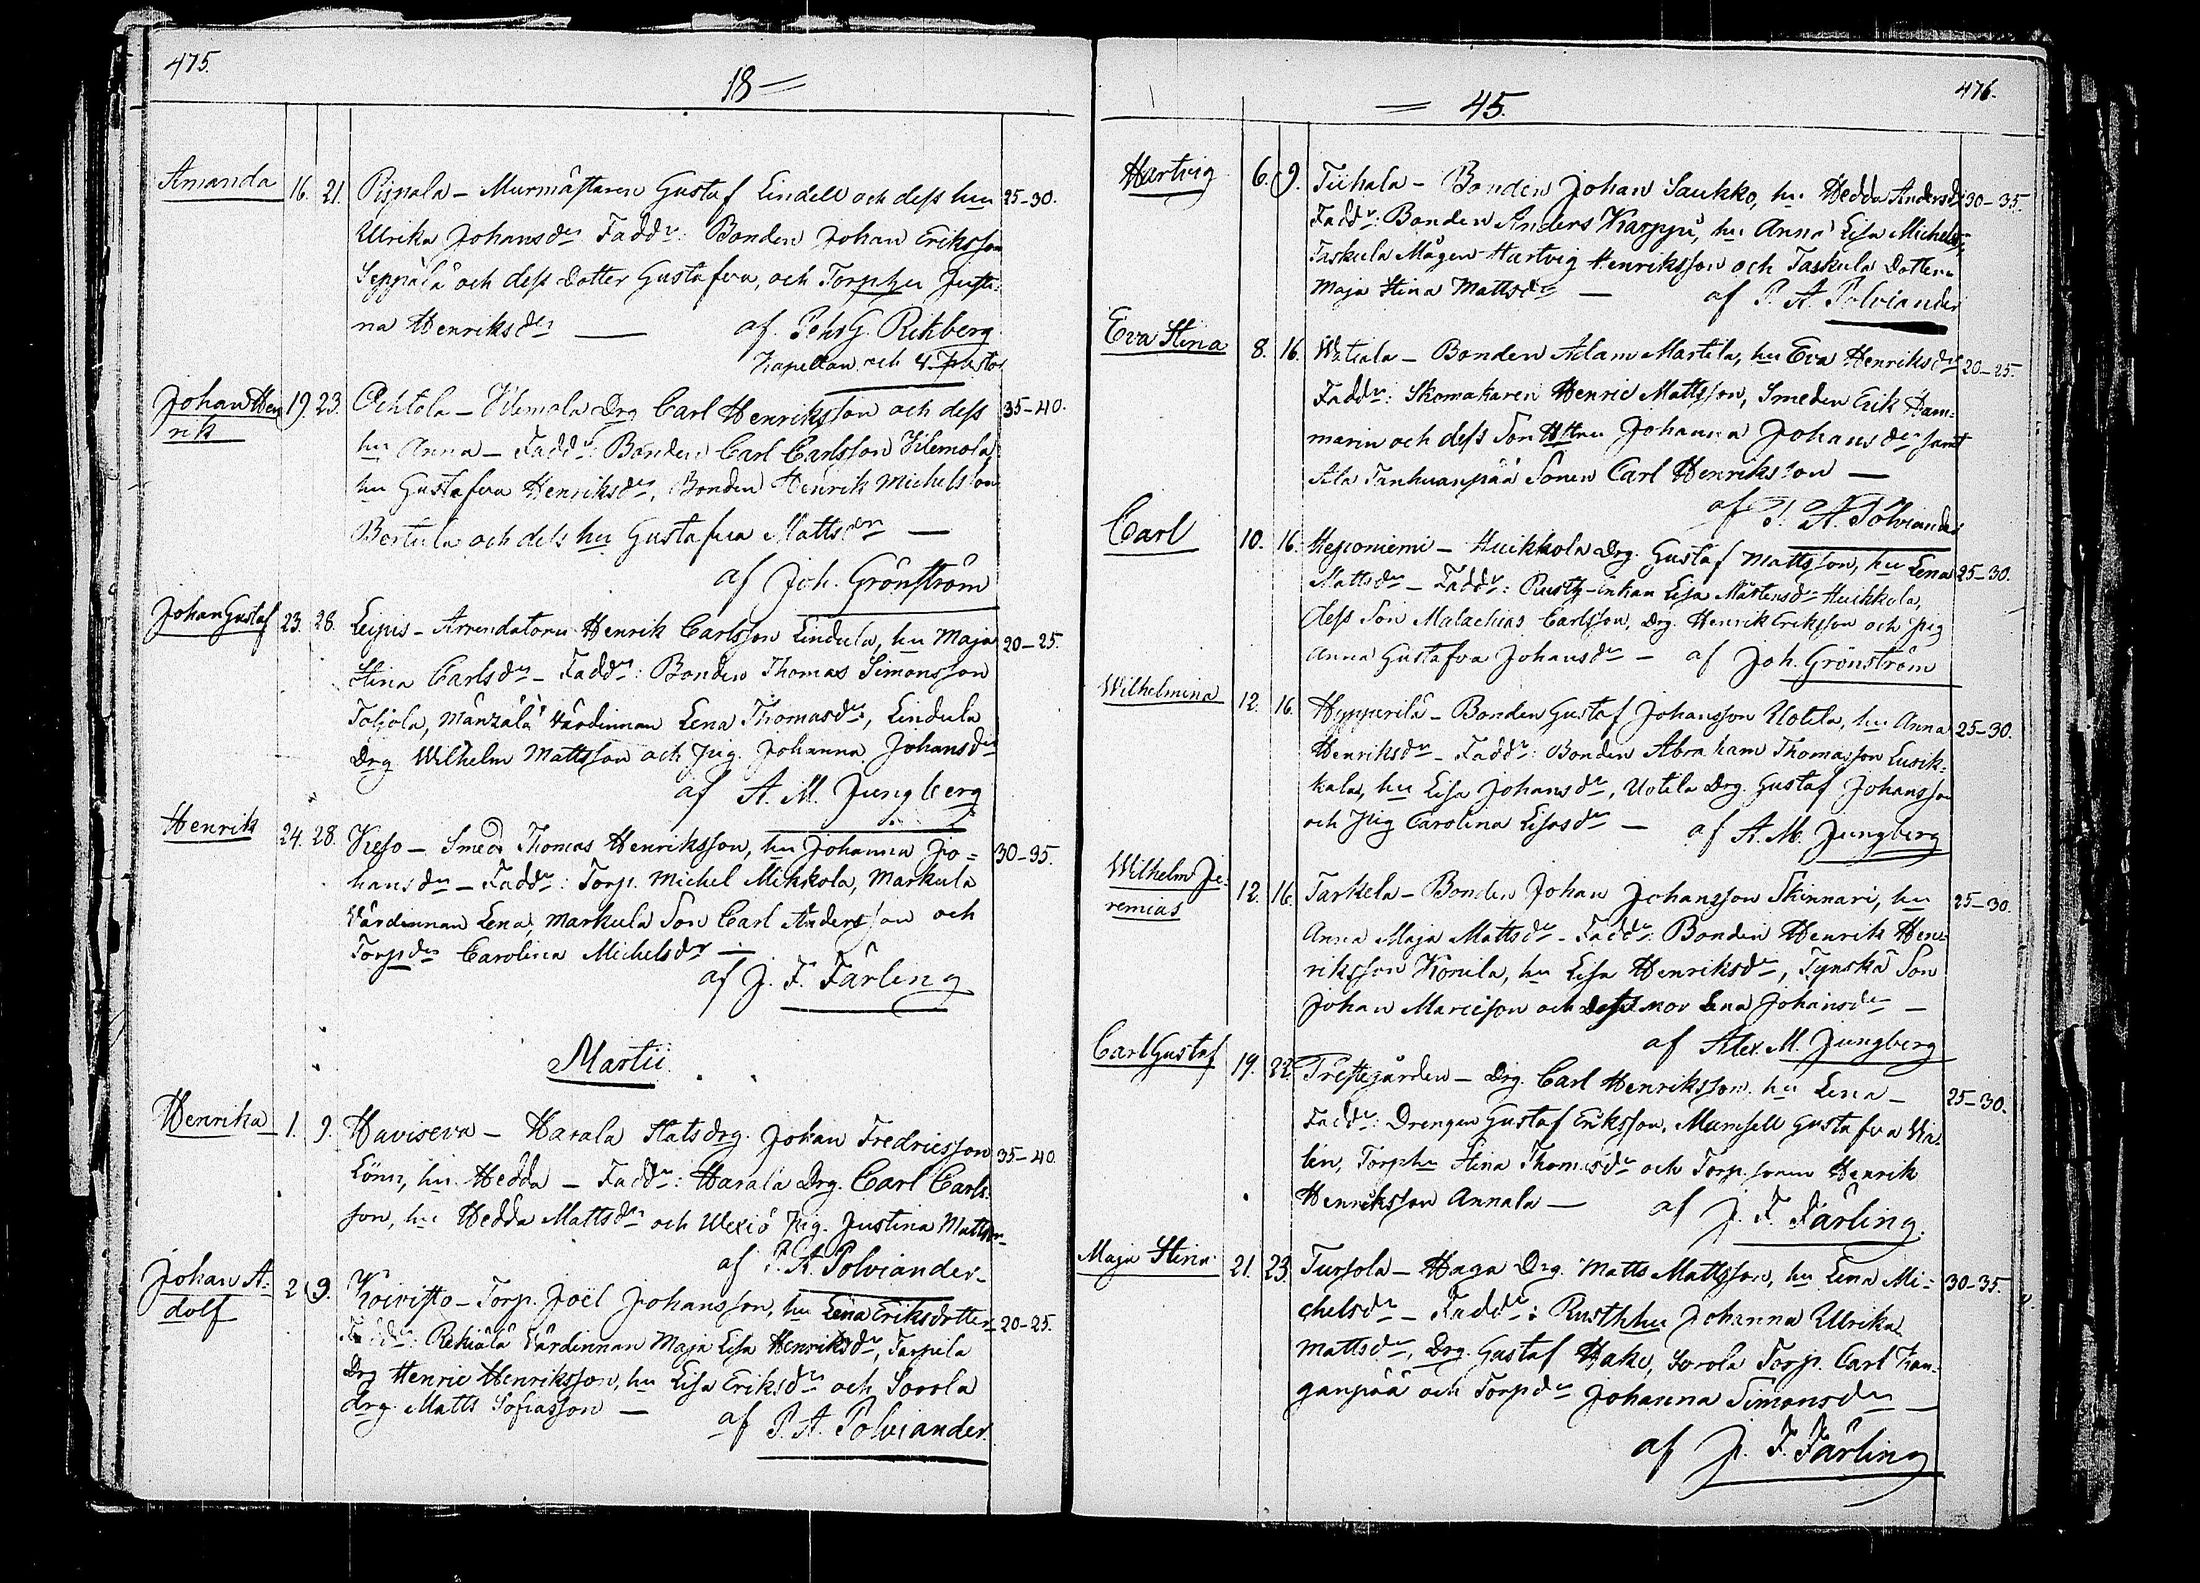 475.
18=
Amanda 16. 21. Pispala - Murmästaren Gustaf Lindell och dess hu 25-30.
Ulrika Johansdr Faddr: Bonden Johan Eriksson
Seppälä och dess dotter Gustafva, och Torphu Justi-
na Henriksdr — af Pehr G. Rikberg
Kapellan och V. Pastor
Johan Hen 19. 23. Ochtola - Yilemola Drg Carl Henriksson och dess 35-40.
rik
hu Anna - Faddr: Bonden Carl Carlsson Yilemola,
hu Gustafva Henriksdr, Bonden Henrik Michelsson
Bertula och dess hu Gustafva Mattsdr —
af Joh. Grönström
Johan Gustaf 23. 28. Leipis - Arrendatorn Henrik Carlsson Lindula, hu Maja 20-25.
Stina Carlsdr - Faddr: Bonden Thomas Simonsson
Toljola, Mänzälä Värdinnan Lena Thomasdr, Lindula
Drg Wilhelm Mattsson och Pig. Johanna Johansdr
af A. M. Jungberg
Henrik 24. 28. Keso - Smed Thomas Henriksson, hu Johanna Jo= 30-35.
hansdr - Faddr: Torp. Michel Mikkola, Markula
Värdinnan Lena, Markula Son Carl Andersson och
Torpdr Carolina Michelsdr —
af J. F. Färling
Martii
Henrika 1. 9. Haviseva - Harala Statsdrg. Johan Fredricsson 35-40.
Lönn, hu Hedda - Faddr: Harala Drg. Carl Carls-
son, hu Hedda Mattsdr och Wexiö Pig. Justina Mattsdr
af P. A. Polviander
Johan A= 2. 9. Koivisto - Torp. Joel Johansson, hu Lena Eriksdotter 20-25.
dolf
Faddr: Rekiälä Värdinnan Maja Lisa Henriksdr, Tarpila
Drg Henric Henriksson, hu Lisa Eriksdr och Sorola
drg. Matts Sofiasson —
af P. A. Polviander
476.
= 45.
Hartvig 6. 9. Tiihala - Bonden Johan Saukko, hu Hedda Andersdr 30-35.
Faddr: Bonden Anders Karppi, hu Anna Lisa Michelsdr,
Taskula Mågen Hartvig Henriksson och Taskula Dottern
Maja Stina Mattsdr — af P. A. Polviander
Eva Stina 8. 16. Watiala - Bonden Adam Martila, hu Eva Henriksdr 20-25.
Faddr: Skomakaren Henric Mattsson, Smeden Erik Ham=
marin och dess Son Hu Johanna Johansdr samt
Ala Tanhuanpää Sonen Carl Henriksson —
af P. A. Polviander
Carl 10. 16. Heponiemi - Huikkola Drg. Gustaf Mattsson, hu Lena 25-30.
Mattsdr - Faddr: Rustg-enkan Lisa Mårtensdr Huikkola,
dess Son Malachias Carlsson, Drg. Henrik Eriksson och Pig
Anna Gustafva Johansdr - af Joh. Grönström
Wilhelmina 12. 16. Hyppärilä - Bonden Gustaf Johansson Uotila, hu Anna 25-30.
Henriksdr - Faddr: Bonden Abraham Thomasson Lusik=
kala, hu Lisa Johansdr, Uotila Drg. Gustaf Johansson
och Pig Carolina Lisasdr — af A. M. Jungberg
Wilhelm Je- 12. 16. Tarkela - Bonden Johan Johansson Skinnari, hu 25-30.
remias
Anna Maja Mattsdr - Faddr: Bonden Henrik Hen=
riksson Konila, hu Lisa Henriksdr, Tynskä Son
Johan Marcisson och dess mor Lena Johansdr —
af Alex. M. Jungberg
Carl Gustaf 19. 22. Prestegården - Drg. Carl Henriksson hu Lena - 25-30.
Faddr: Drengen Gustaf Eriksson, Mamsell Gustafva Wa-
lin, Torphu Stina Thomasdr och Torp. sonen Henrik
Henriksson Annala — af J. F. Färling.
Maja Stina 21. 23. Tursola - Haga Drg. Matts Mattsson, hu Lena Mi= 30-35.
chelsdr - Faddr: Rusthhu Johanna Ulrika
Mattsdr, Drg. Gustaf Hake, Sorola Torp. Carl Kan-
ganpää och Torpdr Johanna Simonsdr —
af J. F. Färling